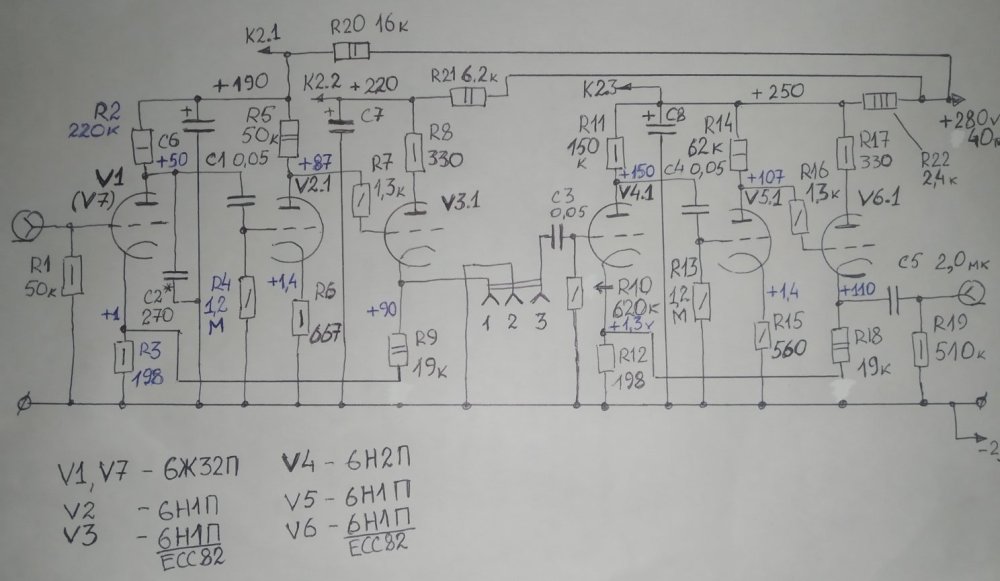 K2.1
R20 16к
+190
K2.2
+220
R21 6.2к
K23
+250
+280v
40м
R2
220к
C6
+50
C1 0,05
R5
50к
+87
C7
R7
1,3к
R8
330
R11
150
к
C8
+150
C4 0,05
R14
62к
+107
R16
1,3к
R17
330
R22
2,4к
V1
(V7)
V2.1
V3.1
C3
0,05
V4.1
V5.1
V6.1
C5 2,0мк
R1
50к
C2*
270
R4
1,2
М
+1,4
R6
667
+90
1 2 3
R10
620к
+1,3v
R13
1,2
М
+1,4
R15
560
+110
R18
19к
R19
510к
+1
R3
198
R9
19к
R12
198
V1, V7 - 6Ж32П
V2 - 6Н1П
V3 - 6Н1П
ECC82
V4 - 6Н2П
V5 - 6Н1П
V6 - 6Н1П
ECC82